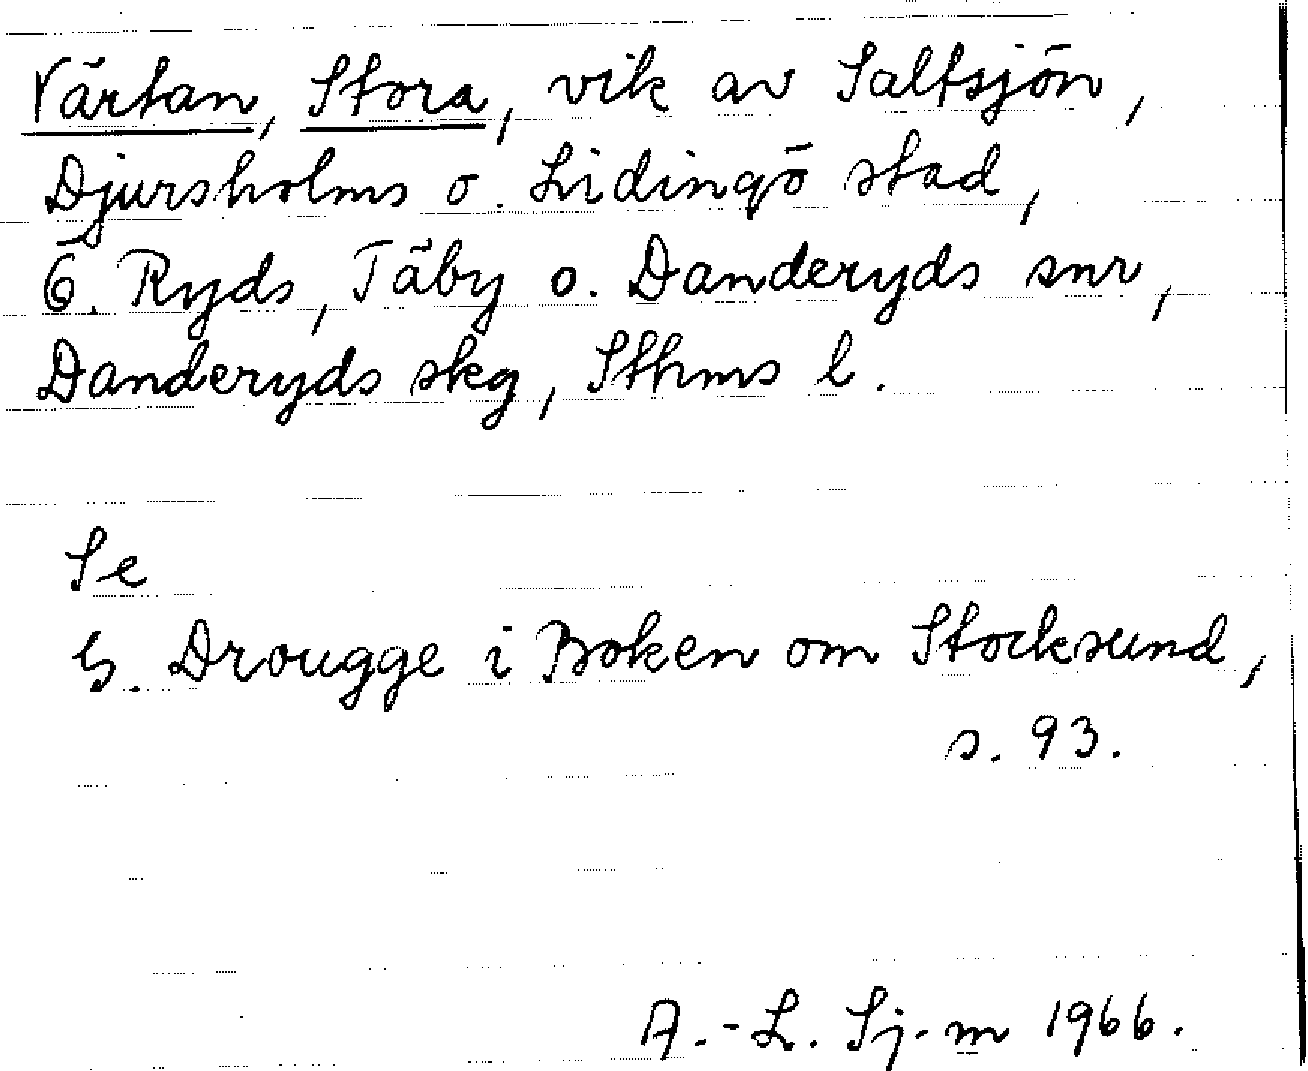 Värtan, Stora, vik av Saltsjön,
Djursholms o. Lidingö stad,
Ö. Ryds, Täby o. Danderyds snr,
Danderyds skg, Sthms l.
Se
G. Drougge i Boken om Stocksund,
s. 93.
A.-L. Sj-m 1966.